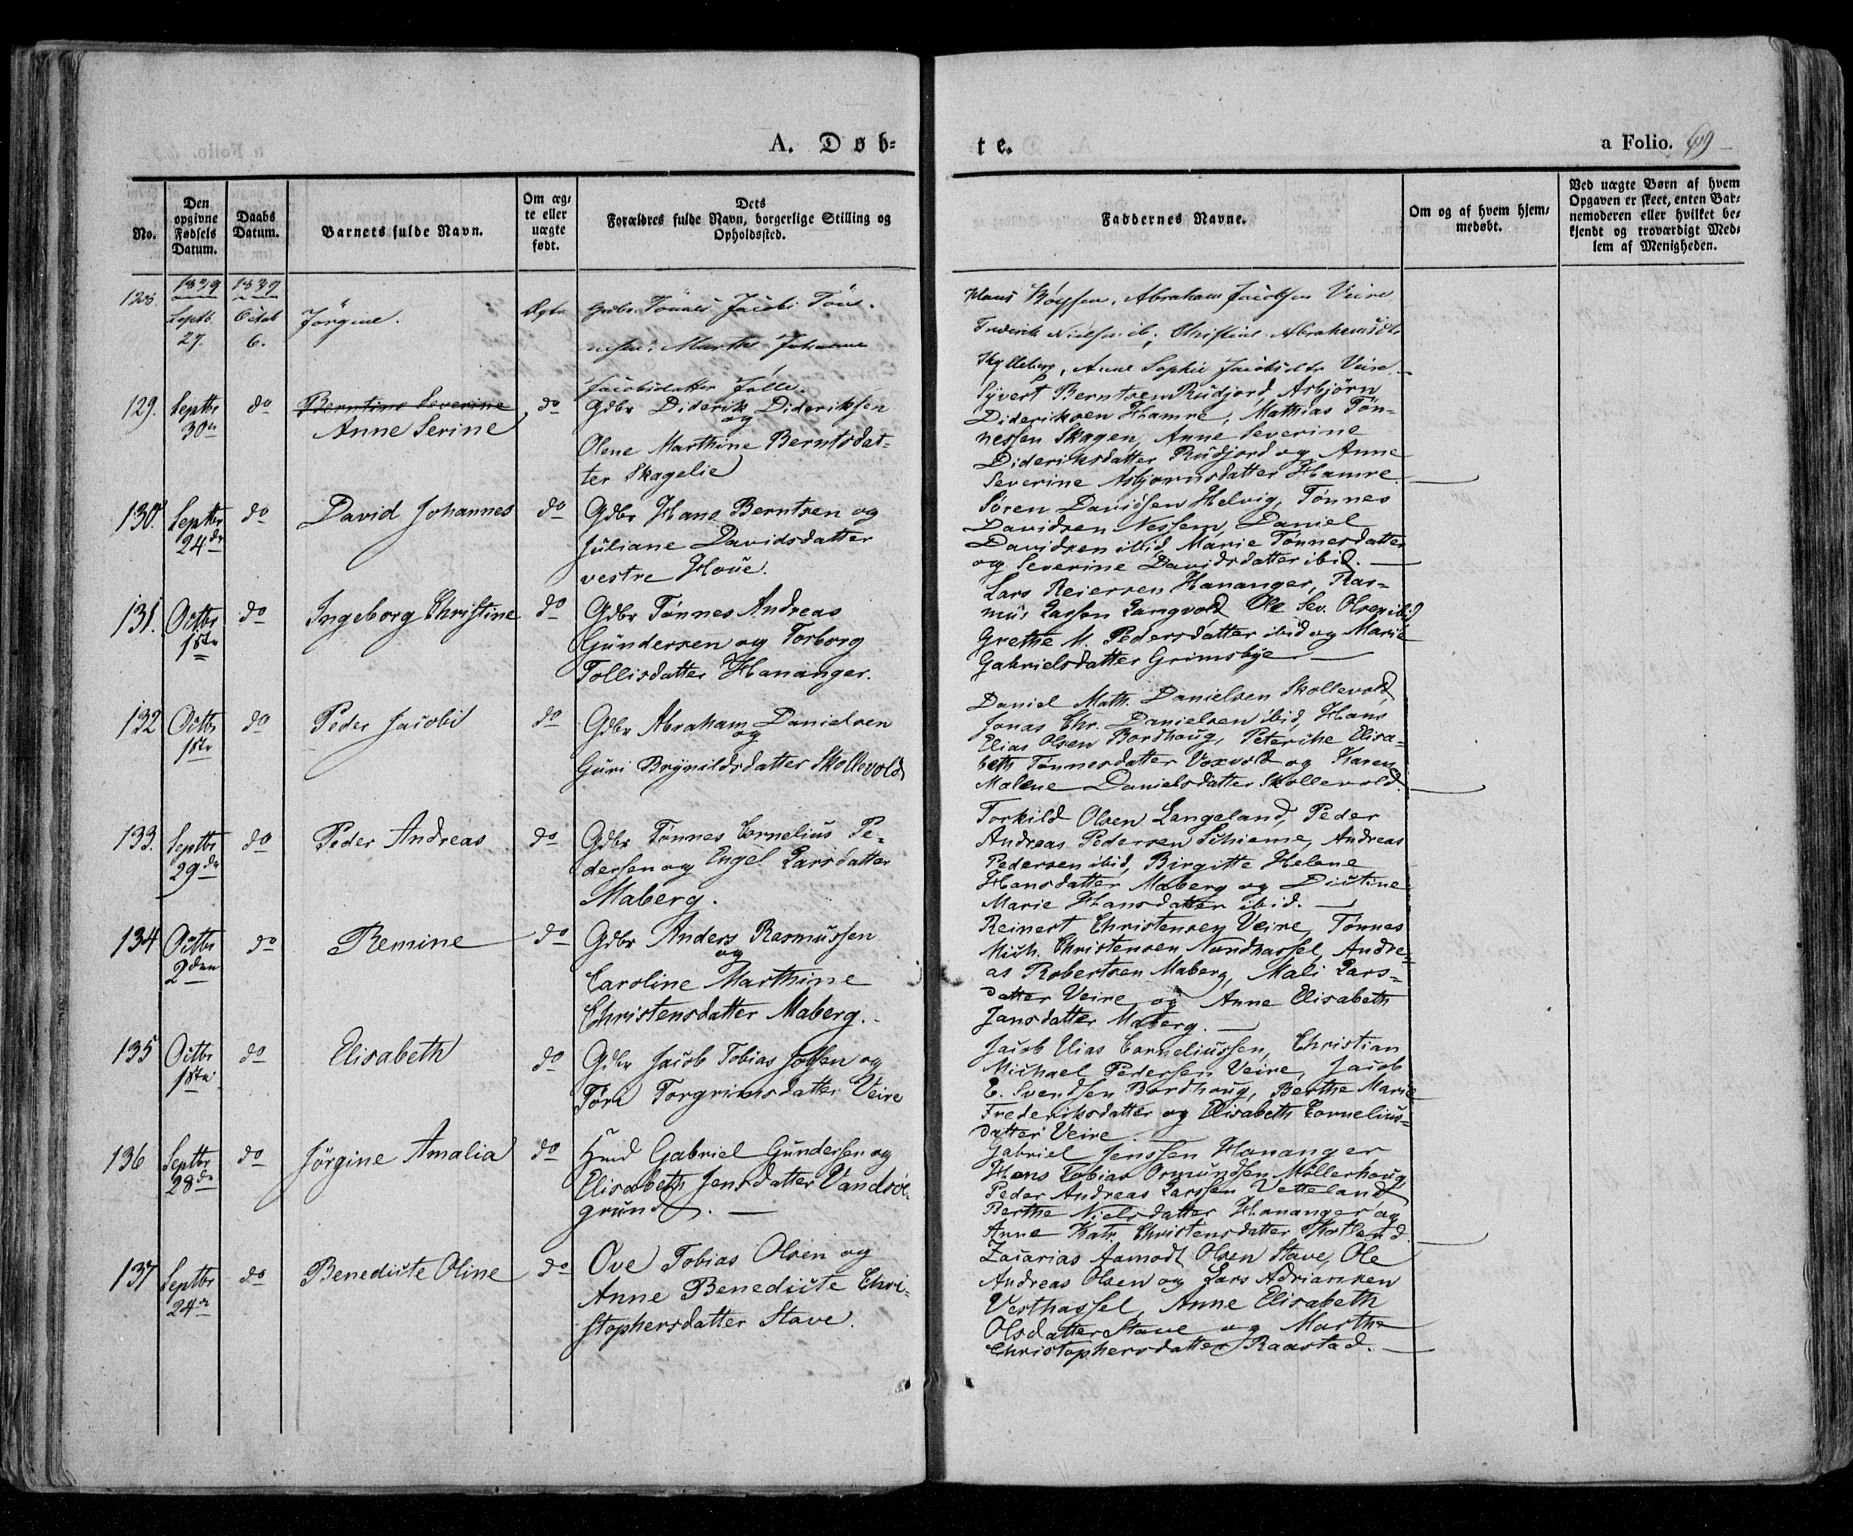 A. Døb=
te.
a Folio. 69
No.
Den opgivne Fødsels Datum.
Daabs Datum.
Barnets fulde Navn.
Om æg= te eller uægte født.
Dets
Forældres fulde Navn, borgerlige Stilling og
Opholdssted.
Faddernes Navne.
Om og af hvem hjem=
medøbt.
Ved uægte Børn af hvem
Opgaven er skeet, enten Bar=
nemoderen eller hvilket be=
kjendt og troværdigt Med=
lem af Menigheden.
1839 1839
Septb. 27. Octob 6. Jørgine. Ægte
Jacobsdatter
Abraham Jacobsen Veire
Frederik Nielsen ib, Christine Abrahamsdtr
Anne Sophie Jacobsdtr Veire.
129. Septbr 30te do Berntine Severine
Anne Serine do
Gdbr Diderik Dideriksen
og
Olene Marthine Berntsdat-
ter Skagelie
Syvert Berntsen Rudjord, Asbjørn
Dideriksen Hamre, Mathias Tøn-
nessen Skagen, Anne Severine
Dideriksdatter Rudjord og Anne
Severine Asbjørnsdatter Hamre.
130. Septbr 24de do David Johannes do
Gdbr Hans Berntsen og
Juliane Davidsdatter
vestre Houe.
Søren Davidsen Helvig, Tønnes
Davidsen Nessem, Daniel
Davidsen ibid, Marie Tønnesdatter
og Severine Davidsdatter ibid.
131. Octbr 1ste do Ingeborg Christine do
Gdbr Tønnes Andreas
Gundersen og Torborg
Tollisdatter Hananger.
Lars Reiersen Hananger, Ras-
mus Larsen Langvold, Ole Sev. Olsen ibid
Grethe M. Pedersdatter ibid og Marie
Gabrielsdatter Grimsbye
132 Octbr 1ste do Peder Jacobi do
Gdbr Abraham Danielsen
og
Guri Brynildsdatter Skollevold
Daniel Math. Danielsen Skollevold,
Jonas Chr. Danielsen ibid, Hans
Elias Olsen Bordhoug, Peterike Elisa-
beth Tønnesdatter Voxvold og Karen
Malene Danielsdatter Skollevold.
133. Septbr 29de do Peder Andreas do
Gdbr Tønnes Cornelius Pe-
dersen og Engel Larsdatter
Maberg.
Torkild Olsen Langeland, Peder
Andreas Pedersen Schieme, Andreas
Pedersen ibid, Birgitte Helene
Hansdatter Maberg og Dictine
Marie Hansdatter ibid.
134 Octbr 2den do Remine do
Gdbr Anders Rasmussen
og
Caroline Marthine
Christensdatter Maberg.
Reinert Christensen Veire, Tønnes
Mich. Christensen Nordhassel, Andre-
as Robertsen Maberg, Mali Lars-
datter Veire og Anne Elisabeth
Jansdatter Maberg.
135 Octbr 1ste do Elisabeth do
Gdbr Jacob Tobias Jossen og
Tora Torgrimsdatter Veire
Jacob Elias Corneliussen, Christian
Michael Pedersen Veire, Jacob
E. Svendsen Bordhoug, Berthe Marie
Frederiksdatter og Elisabeth Cornelius-
datter Veire.
136 Septbr 28de do Jørgine Amalia do
Hmd Gabriel Gundersen og
Elisabeth Jensdatter Vandsøe-
grund.
Gabriel Jenssen Hananger,
Hans Tobias Osmundsen Møllerhoug,
Peder Andreas Larssen Vetteland
Berthe Nielsdatter Hananger og
Anne Katr. Christensdatter
137 Septbr 24de do Benedicte Oline do
Ove Tobias Olsen og
Anne Benedicte Chri-
stophersdatter Stave.
Zacarias Aamodt Olsen Stave, Ole
Andreas Olsen og Lars Adriansen
Vesthassel, Anne Elisabeth
Olsdatter Stave og Marthe
Christophersdatter Raastad.